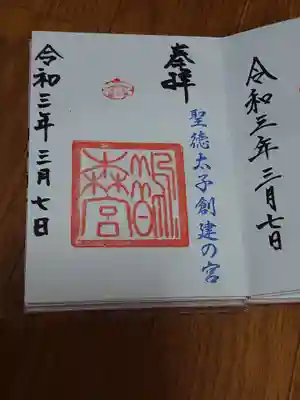 令和三年三月七日
奉拝
聖徳太子創建の宮
森宮
令和三年三月七日